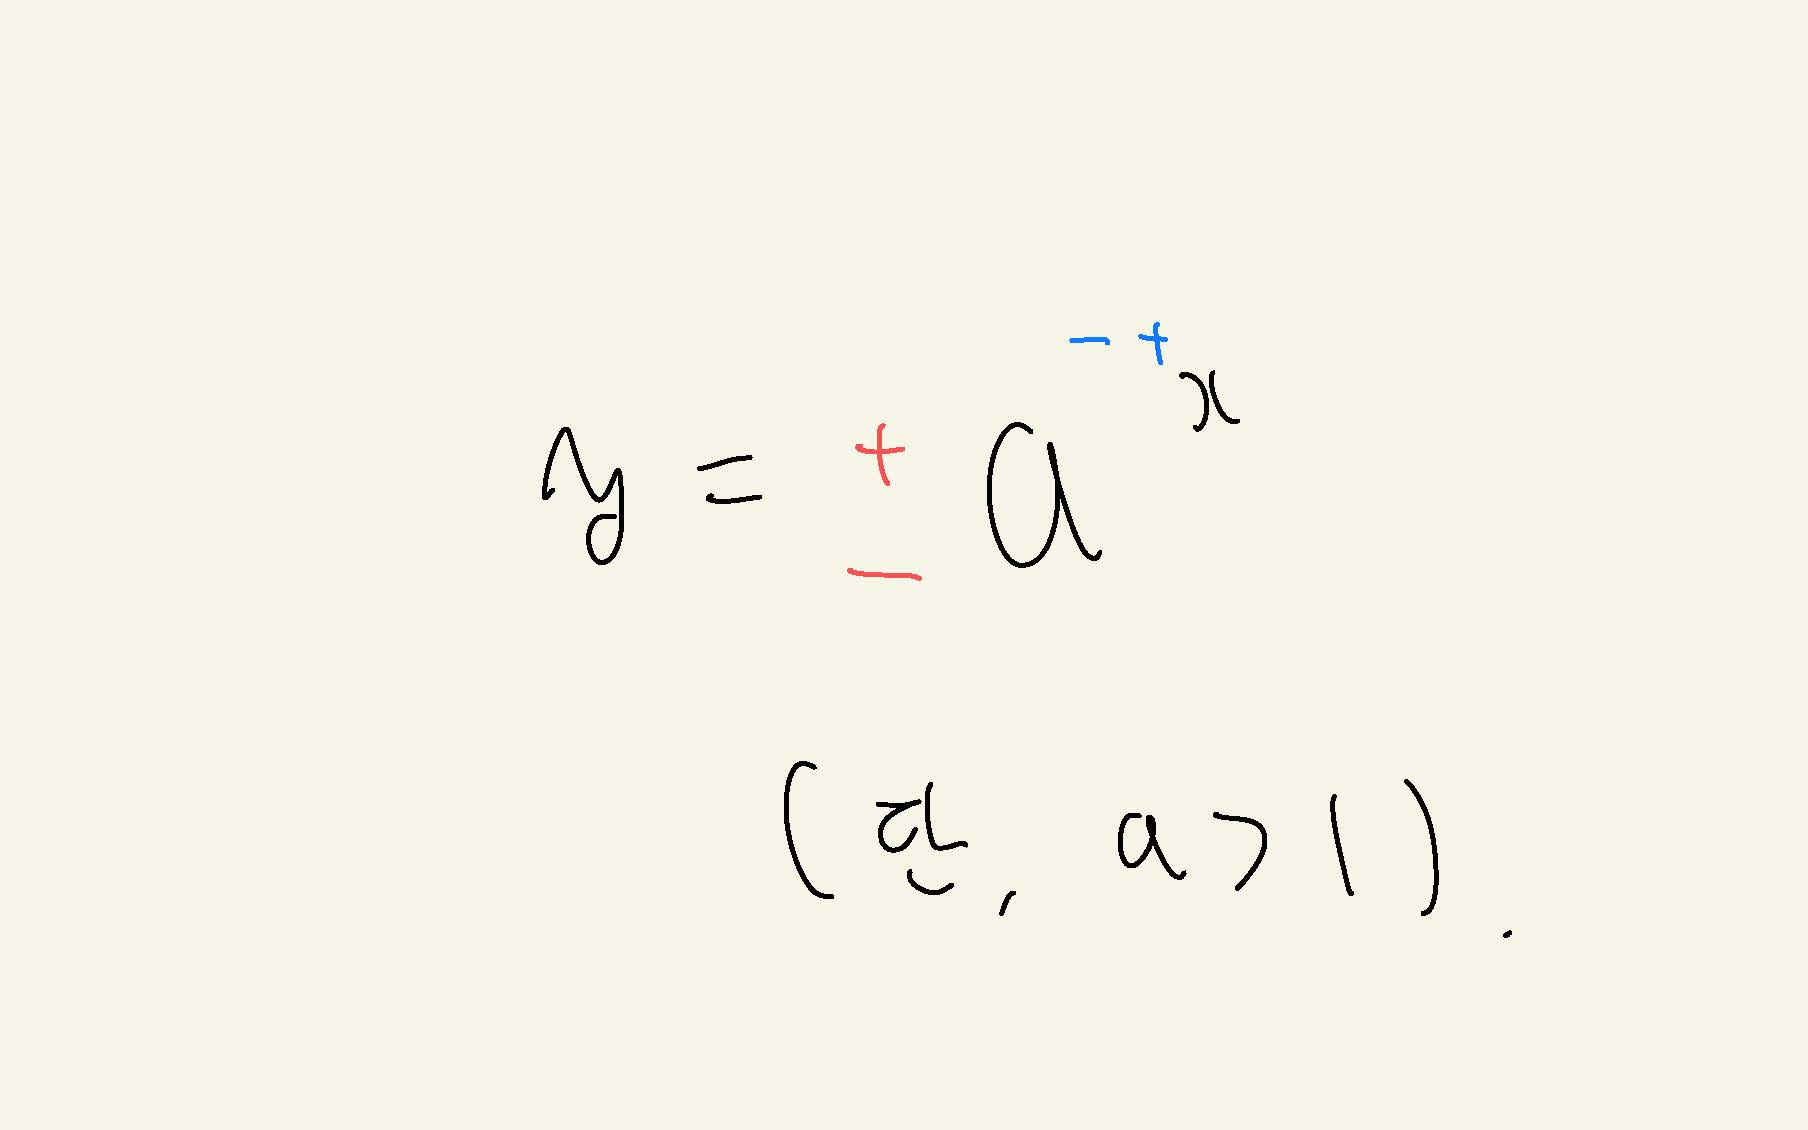 y = ± a^{-+x}
(단, a > 1).